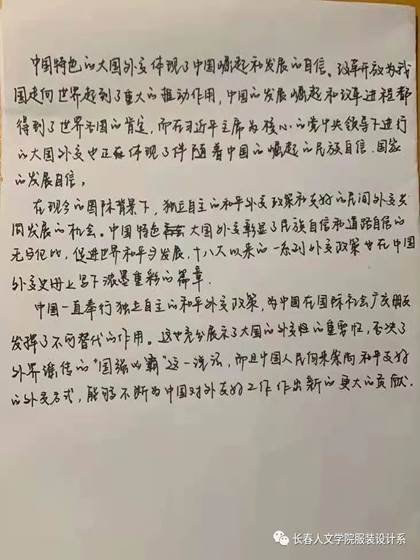 中国特色的大国外交体现了中国崛起和发展的自信。改革开放为我
国走向世界起到了重大的推动作用,中国的发展崛起和改革进程都
得到了世界各国的肯定,而在习近平主席为核心的党中央领导下进行
的大国外交也正在体现了伴随着中国的崛起的民族自信、国家
的发展自信。
在现今的国际背景下,独立自主的和平外交政策和友好的民间外交共
同发展的机会。中国特色大国外交彰显了民族自信和道路自信的
无与伦比,促进世界和平与发展,十八大以来的一系列外交政策也在中国
外交史册上留下浓墨重彩的篇章.
中国一直奉行独立自主的和平外交政策,为中国在国际社会广交朋友
发挥了不可替代的作用。这也充分展示了大国的外交的重要性,否决了
外界谣传的“国强必霸”这一说法,而且中国人民向来崇尚和平友好
的外交方式,能够不断为中国对外友好工作作出新的更大的贡献.
长春人文学院服装设计系